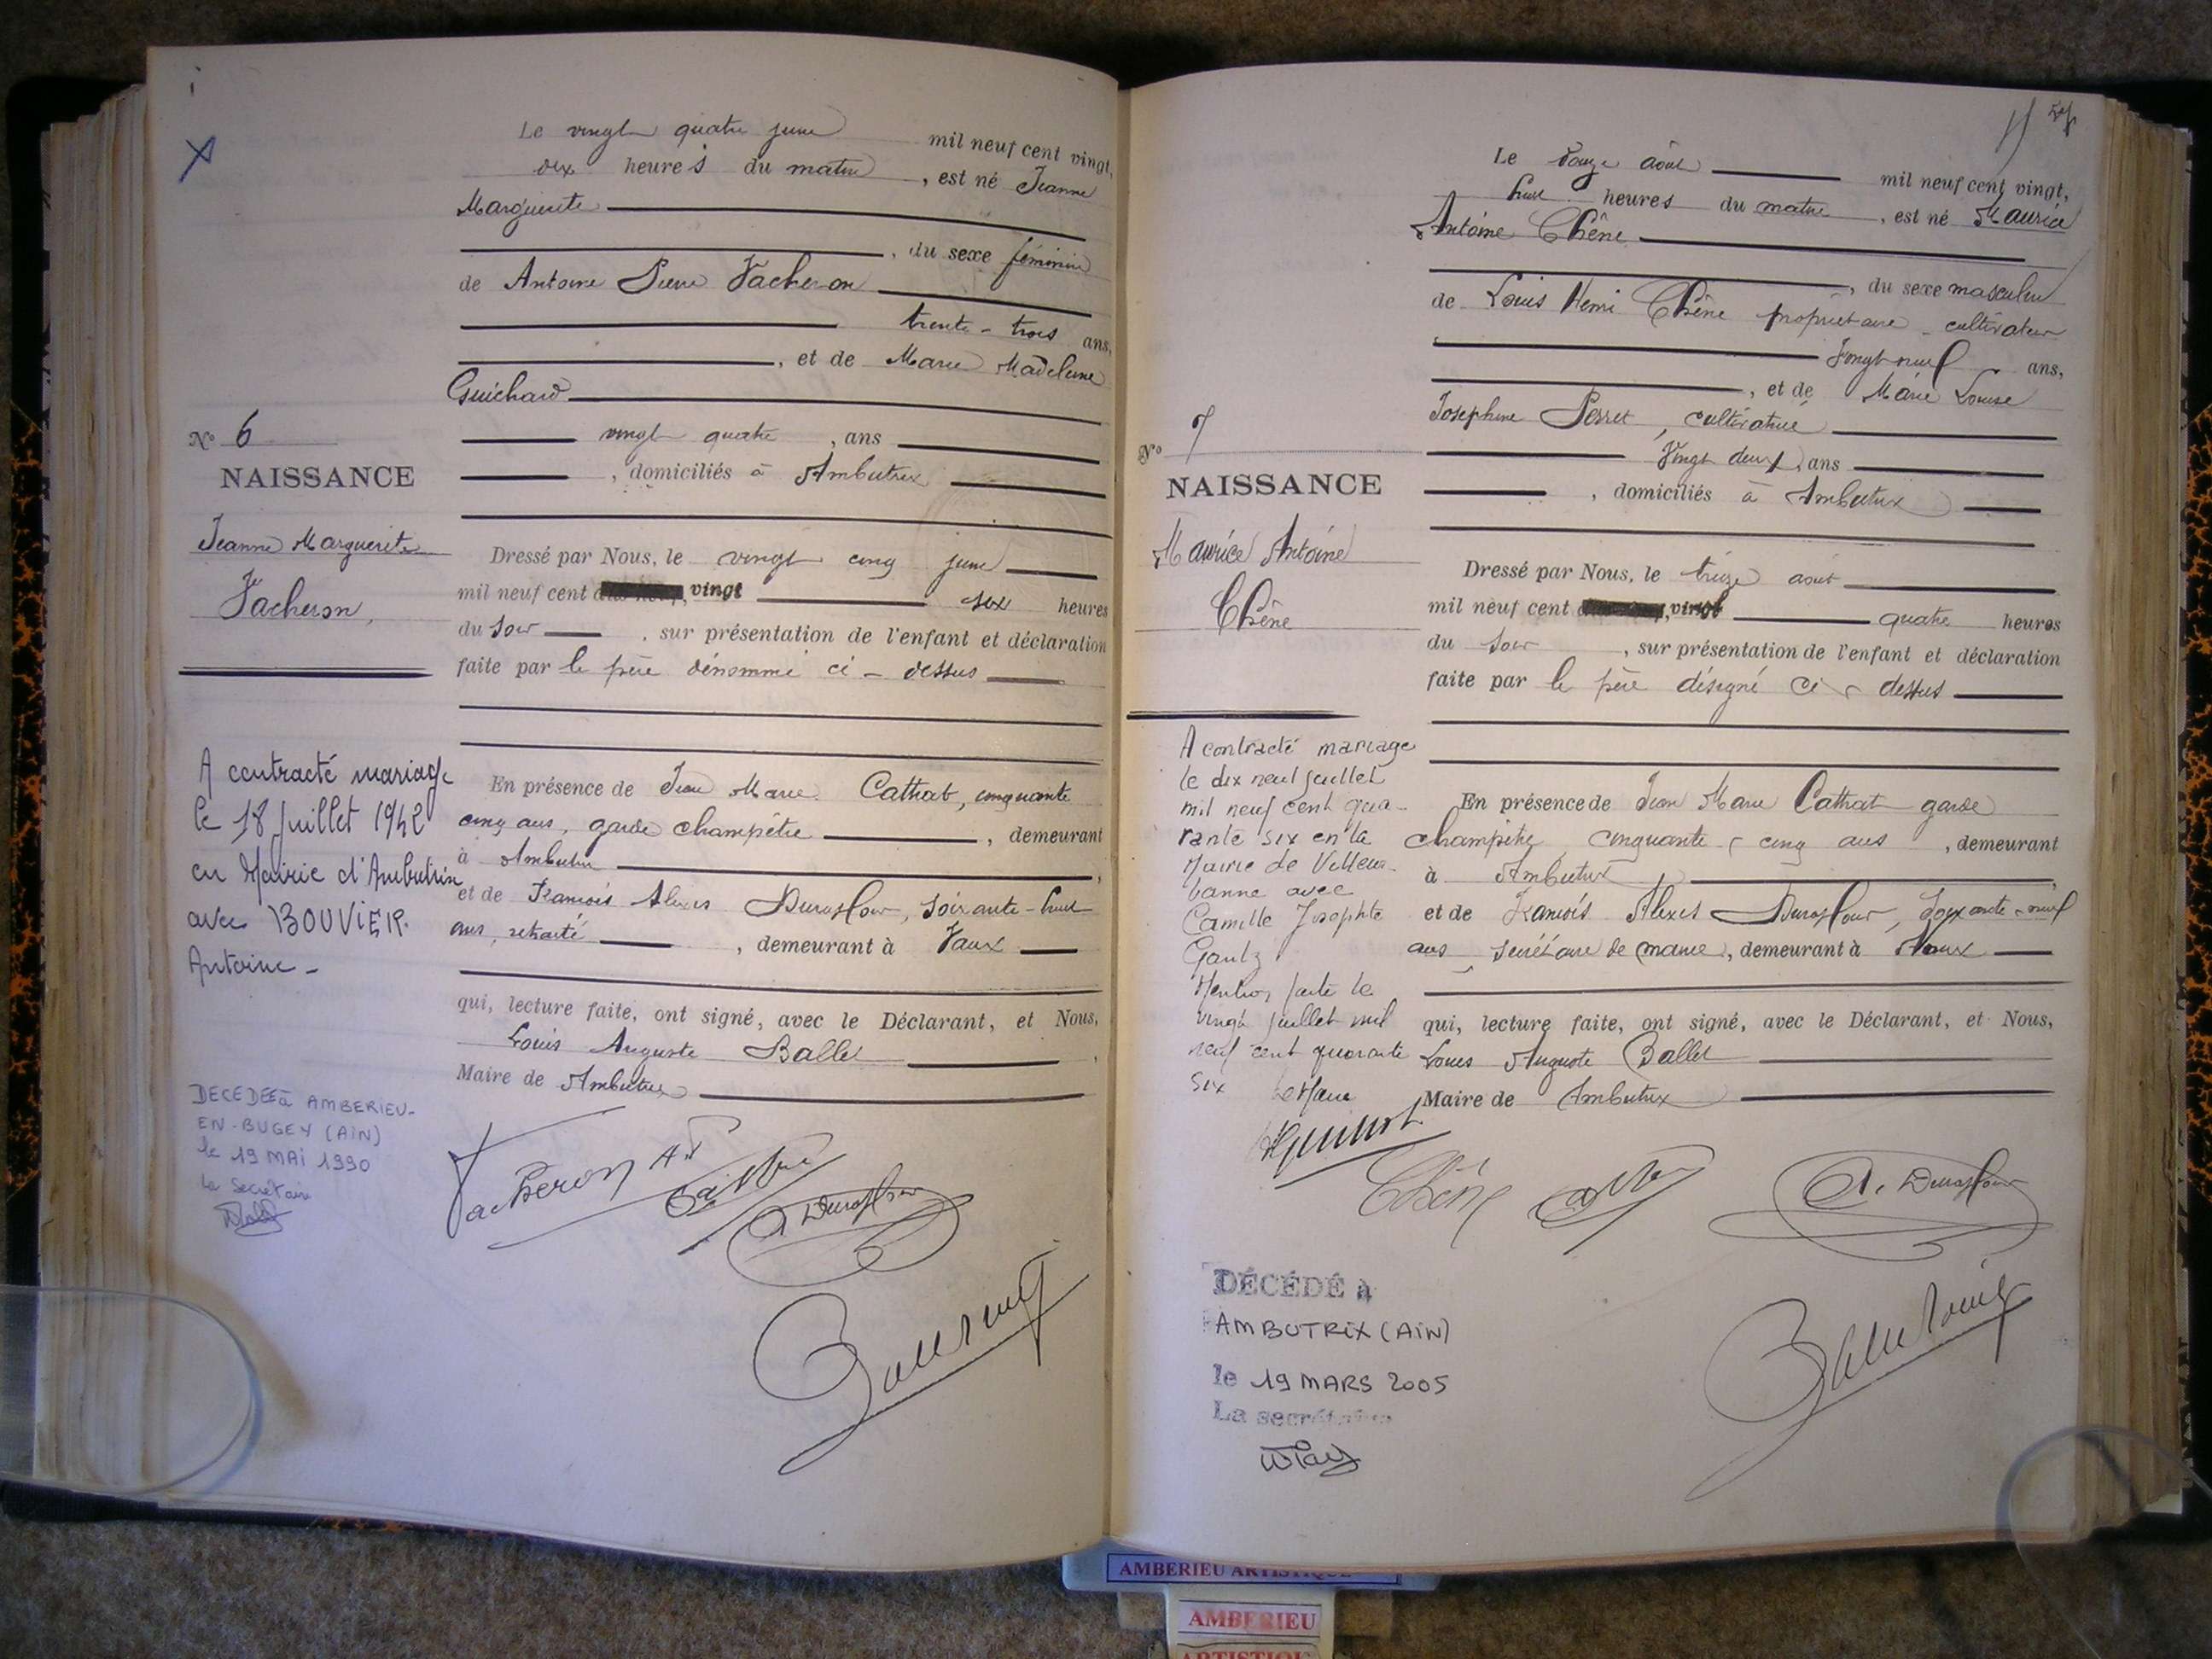 Le vingt quatre juin mil neuf cent vingt,
dix heures du matin, est né Jeanne
Marguerite
, du sexe féminin
de Antoine Pierre Vacheron
trente-trois ans,
, et de Marie Madeleine
Guichard
vingt quatre, ans
, domiciliés à Ambutrix
Dressé par Nous, le vingt cinq juin
mil neuf cent vingt six heures
du soir, sur présentation de l'enfant et déclaration
faite par le père dénommé ci-dessus
En présence de Jean Marie Cathat, cinquante
cinq ans, garde champêtre, demeurant
à Ambutrix,
et de François Alexis Duraffour, soixante-huit
ans, retraité, demeurant à Vaux
qui, lecture faite, ont signé, avec le Déclarant, et Nous,
Louis Auguste Ballet,
Maire de Ambutrix
Vacheron
A. Duraffour
No 6
NAISSANCE
Jeanne Marguerite
Vacheron,
A contracté mariage
le 18 juillet 1942
en Mairie d'Ambutrix
avec BOUVIER
Antoine -
DECEDEE à AMBERIEU-
EN-BUGEY (AIN)
le 19 MAI 1990
La Secrétaire
Le douze août mil neuf cent vingt,
huit heures du matin, est né Maurice
Antoine Chêne
, du sexe masculin
de Louis Henri Chêne propriétaire-cultivateur
Vingt neuf ans,
, et de Marie Louise
Joséphine Perret, cultivatrice
Vingt deux, ans
, domiciliés à Ambutrix
Dressé par Nous, le treize août
mil neuf cent, vingt quatre heures
du soir, sur présentation de l'enfant et déclaration
faite par le père désigné ci-dessus
En présence de Jean Marie Cathat garde
champêtre cinquante-cinq ans, demeurant
à Ambutrix
et de François Alexis Duraffour, Soixante-neuf
ans, secrétaire de mairie, demeurant à Vaux
qui, lecture faite, ont signé, avec le Déclarant, et Nous,
Louis Auguste Ballet
Maire de Ambutrix
Chêne
A. Duraffour
No 7
NAISSANCE
Maurice Antoine
Chêne
A contracté mariage
le dix neuf juillet
mil neuf cent qua-
rante six en la
Mairie de Villeur-
banne avec
Camille Josephte
Gantz
Mention faite le
vingt juillet mil
neuf cent quarante
six Le Maire
DÉCÉDÉ à
AMBUTRIX (AIN)
le 19 MARS 2005
La secrétaire
AMBERIEU ARTISTIQUE
AMBERIEU
ARTISTIQUE